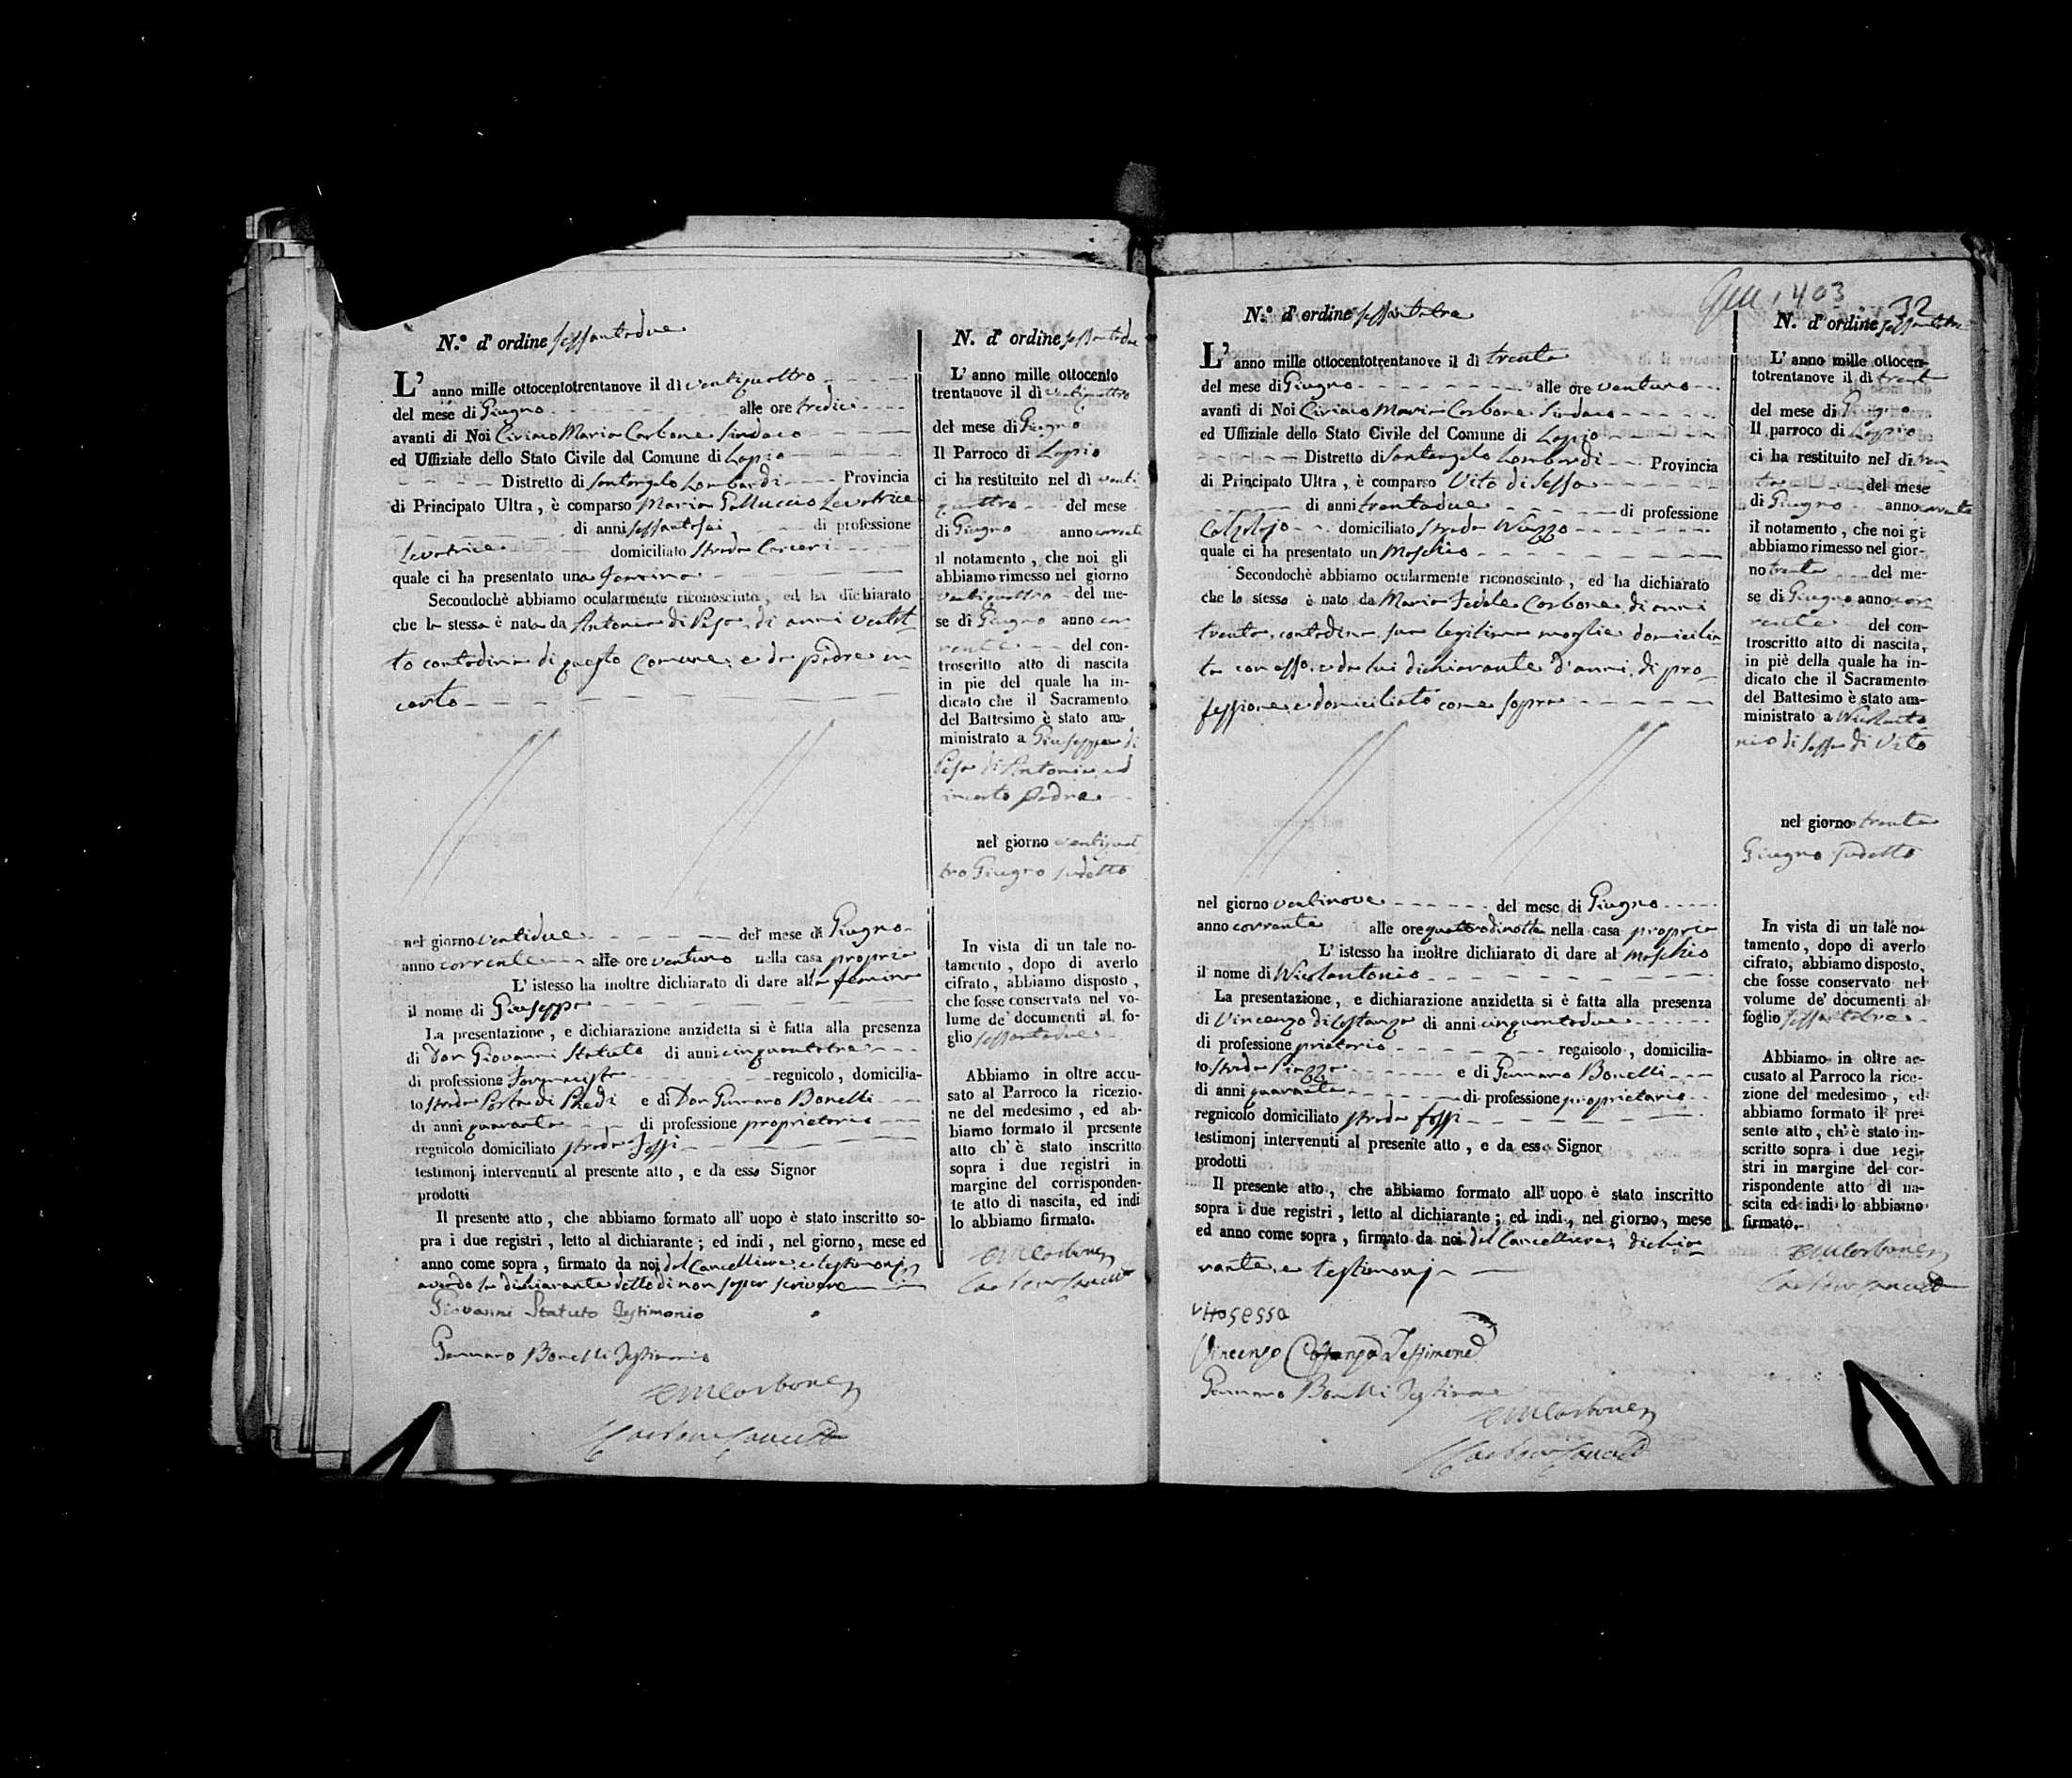 N.º d' ordine sessantadue
L' anno mille ottocentotrentanove il dì ventiquattro
del mese di Giugno alle ore tredici
avanti di Noi Ciriaco Maria Carbone Sindaco
ed Uffiziale dello Stato Civile del Comune di Lapio
Distretto di Santangelo Lombardi Provincia
di Principato Ultra , è comparso Maria Galluccio Levatrice
di anni sessantasei di professione
Levatrice domiciliato Strada Carceri
quale ci ha presentato una Femina
Secondochè abbiamo ocularmente riconosciuto, ed ha dichiarato
che la stessa è nata da Antonia di Pesa di anni
contadina di questo Comune, e da padre in-
certo
nel giorno ventidue del mese di Giugno
anno corrente alle ore ventuno nella casa propria
L' istesso ha inoltre dichiarato di dare alla femina
il nome di Giuseppa
La presentazione , e dichiarazione anzidetta si è fatta alla presenza
di Don Giovanni Statuto di anni cinquantatre
di professione Farmacista regnicolo , domicilia-
to strada Porta di Piedi e di Don Gennaro Bonelli
di anni quaranta di professione proprietario
regnicolo domiciliato strada Fossi
testimonj intervenuti al presente atto , e da esso Signor
prodotti
Il presente atto , che abbiamo formato all' uopo è stato inscritto so-
pra i due registri , letto al dichiarante ; ed indi , nel giorno, mese ed
anno come sopra , firmato da noi, dal Cancelliere, e testimonj
avendo la dichiarante detto di non saper scrivere
Giovanni Statuto Testimonio
Gennaro Bonelli Testimonio
CMCarbone
N. d' ordine sessantadue
L' anno mille ottocento
trentanove il dì ventiquattro
del mese di Giugno
Il Parroco di Lapio
ci ha restituito nel dì venti
quattro del mese
di Giugno anno corrente
il notamento , che noi gli
abbiamo rimesso nel giorno
ventiquattro del me-
se di Giugno anno cor-
rente del con-
troscritto atto di nascita
in pie del quale ha in-
dicato che il Sacramento
del Battesimo è stato am-
ministrato a Giuseppa di
Pesa di Antonia ed
incerto padre
nel giorno ventiquat
tro Giugno sudetto
In vista di un tale no-
tamento , dopo di averlo
cifrato , abbiamo disposto ,
che fosse conservato nel vo-
lume de' documenti al fo-
glio sessantadue
Abbiamo in oltre accu-
sato al Parroco la ricezio-
ne del medesimo , ed ab-
biamo formato il presente
atto ch' è stato inscritto
sopra i due registri in
margine del corrisponden-
te atto di nascita, ed indi
lo abbiamo firmato.
CMCarbone
403
32
N.º d' ordine sessantatre
L' anno mille ottocentotrentanove il dì trenta
del mese di Giugno alle ore ventuno
avanti di Noi Ciriaco Maria Carbone Sindaco
ed Uffiziale dello Stato Civile del Comune di Lapio
Distretto di Santangelo Lombardi Provincia
di Principato Ultra , è comparso Vito di Sessa
di anni trentadue di professione
Calzolajo domiciliato strada
quale ci ha presentato un Maschio
Secondochè abbiamo ocularmente riconosciuto , ed ha dichiarato
che lo stesso è nato da Maria Fedele Carbone, di anni
trenta, contadina, sua legitima moglie domicilia
ta con esso, e da lui dichiarante d'anni, di pro-
fessione, e domiciliato come sopra
nel giorno ventinove del mese di Giugno
anno corrente alle ore quattro di notte nella casa propria
L' istesso ha inoltre dichiarato di dare al maschio
il nome di Nicolantonio
La presentazione, e dichiarazione anzidetta si è fatta alla presenza
di Vincenzo di Costanza di anni cinquantadue
di professione regnicolo , domicilia-
to strada Piazza e di Gennaro Bonelli
di anni quaranta di professione proprietario
regnicolo domiciliato strada Fossi
testimonj intervenuti al presente atto , e da esso Signor
prodotti
Il presente atto , che abbiamo formato all' uopo è stato inscritto
sopra i due registri, letto al dichiarante ; ed indi , nel giorno, mese
ed anno come sopra , firmato da noi, dal Cancelliere, dichia-
rante, e testimonj
Vito sessa
Vincenzo Costanza Testimone
Gennaro Bonelli Testimone
CMCarbone
N. d' ordine sessantatre
L' anno mille ottocen-
totrentanove il dì trenta
del mese di Giugno
Il parroco di Lapio
ci ha restituito nel dì tren
ta del mese
di Giugno anno corrente
il notamento, che noi gli
abbiamo rimesso nel gior-
no trenta del me-
se di Giugno anno cor-
rente del con-
troscritto atto di nascita,
in piè della quale ha in-
dicato che il Sacramento
del Battesimo è stato am-
ministrato a Nicolanto
nio di Sessa di Vito
nel giorno trenta
Giugno sudetto
In vista di un tale no-
tamento, dopo di averlo
cifrato, abbiamo disposto,
che fosse conservato nel
volume de' documenti al
foglio sessantatre
Abbiamo in oltre ac-
cusato al Parroco la rice-
zione del medesimo , ed
abbiamo formato il pre-
sente atto, ch'è stato in-
scritto sopra i due regi-
stri in margine del cor-
rispondente atto di na-
scita ed indi lo abbiamo
firmato.
CMCarbone